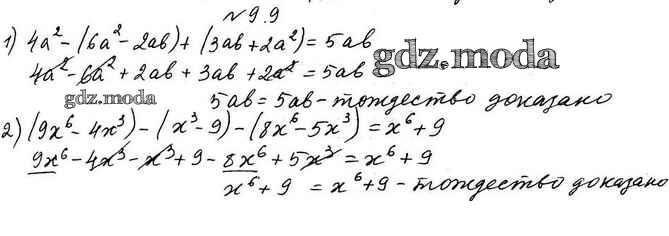 №9.9
1) 4a² - (6a² - 2ab) + (3ab + 2a²) = 5ab
4a² - 6a² + 2ab + 3ab + 2a² = 5ab
gdz.moda
gdz.moda
5ab = 5ab - тождество доказано
2) (9x⁶ - 4x³) - (x³ - 9) - (8x⁶ - 5x³) = x⁶ + 9
9x⁶ - 4x³ - x³ + 9 - 8x⁶ + 5x³ = x⁶ + 9
x⁶ + 9 = x⁶ + 9 - тождество доказано